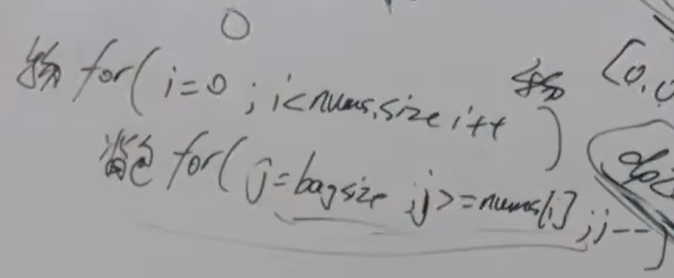 0
物 for( i=0 ; i<nums.size i++ )
背包 for( j=bagsize ; j>=nums[i] ; j-- )
[0,0